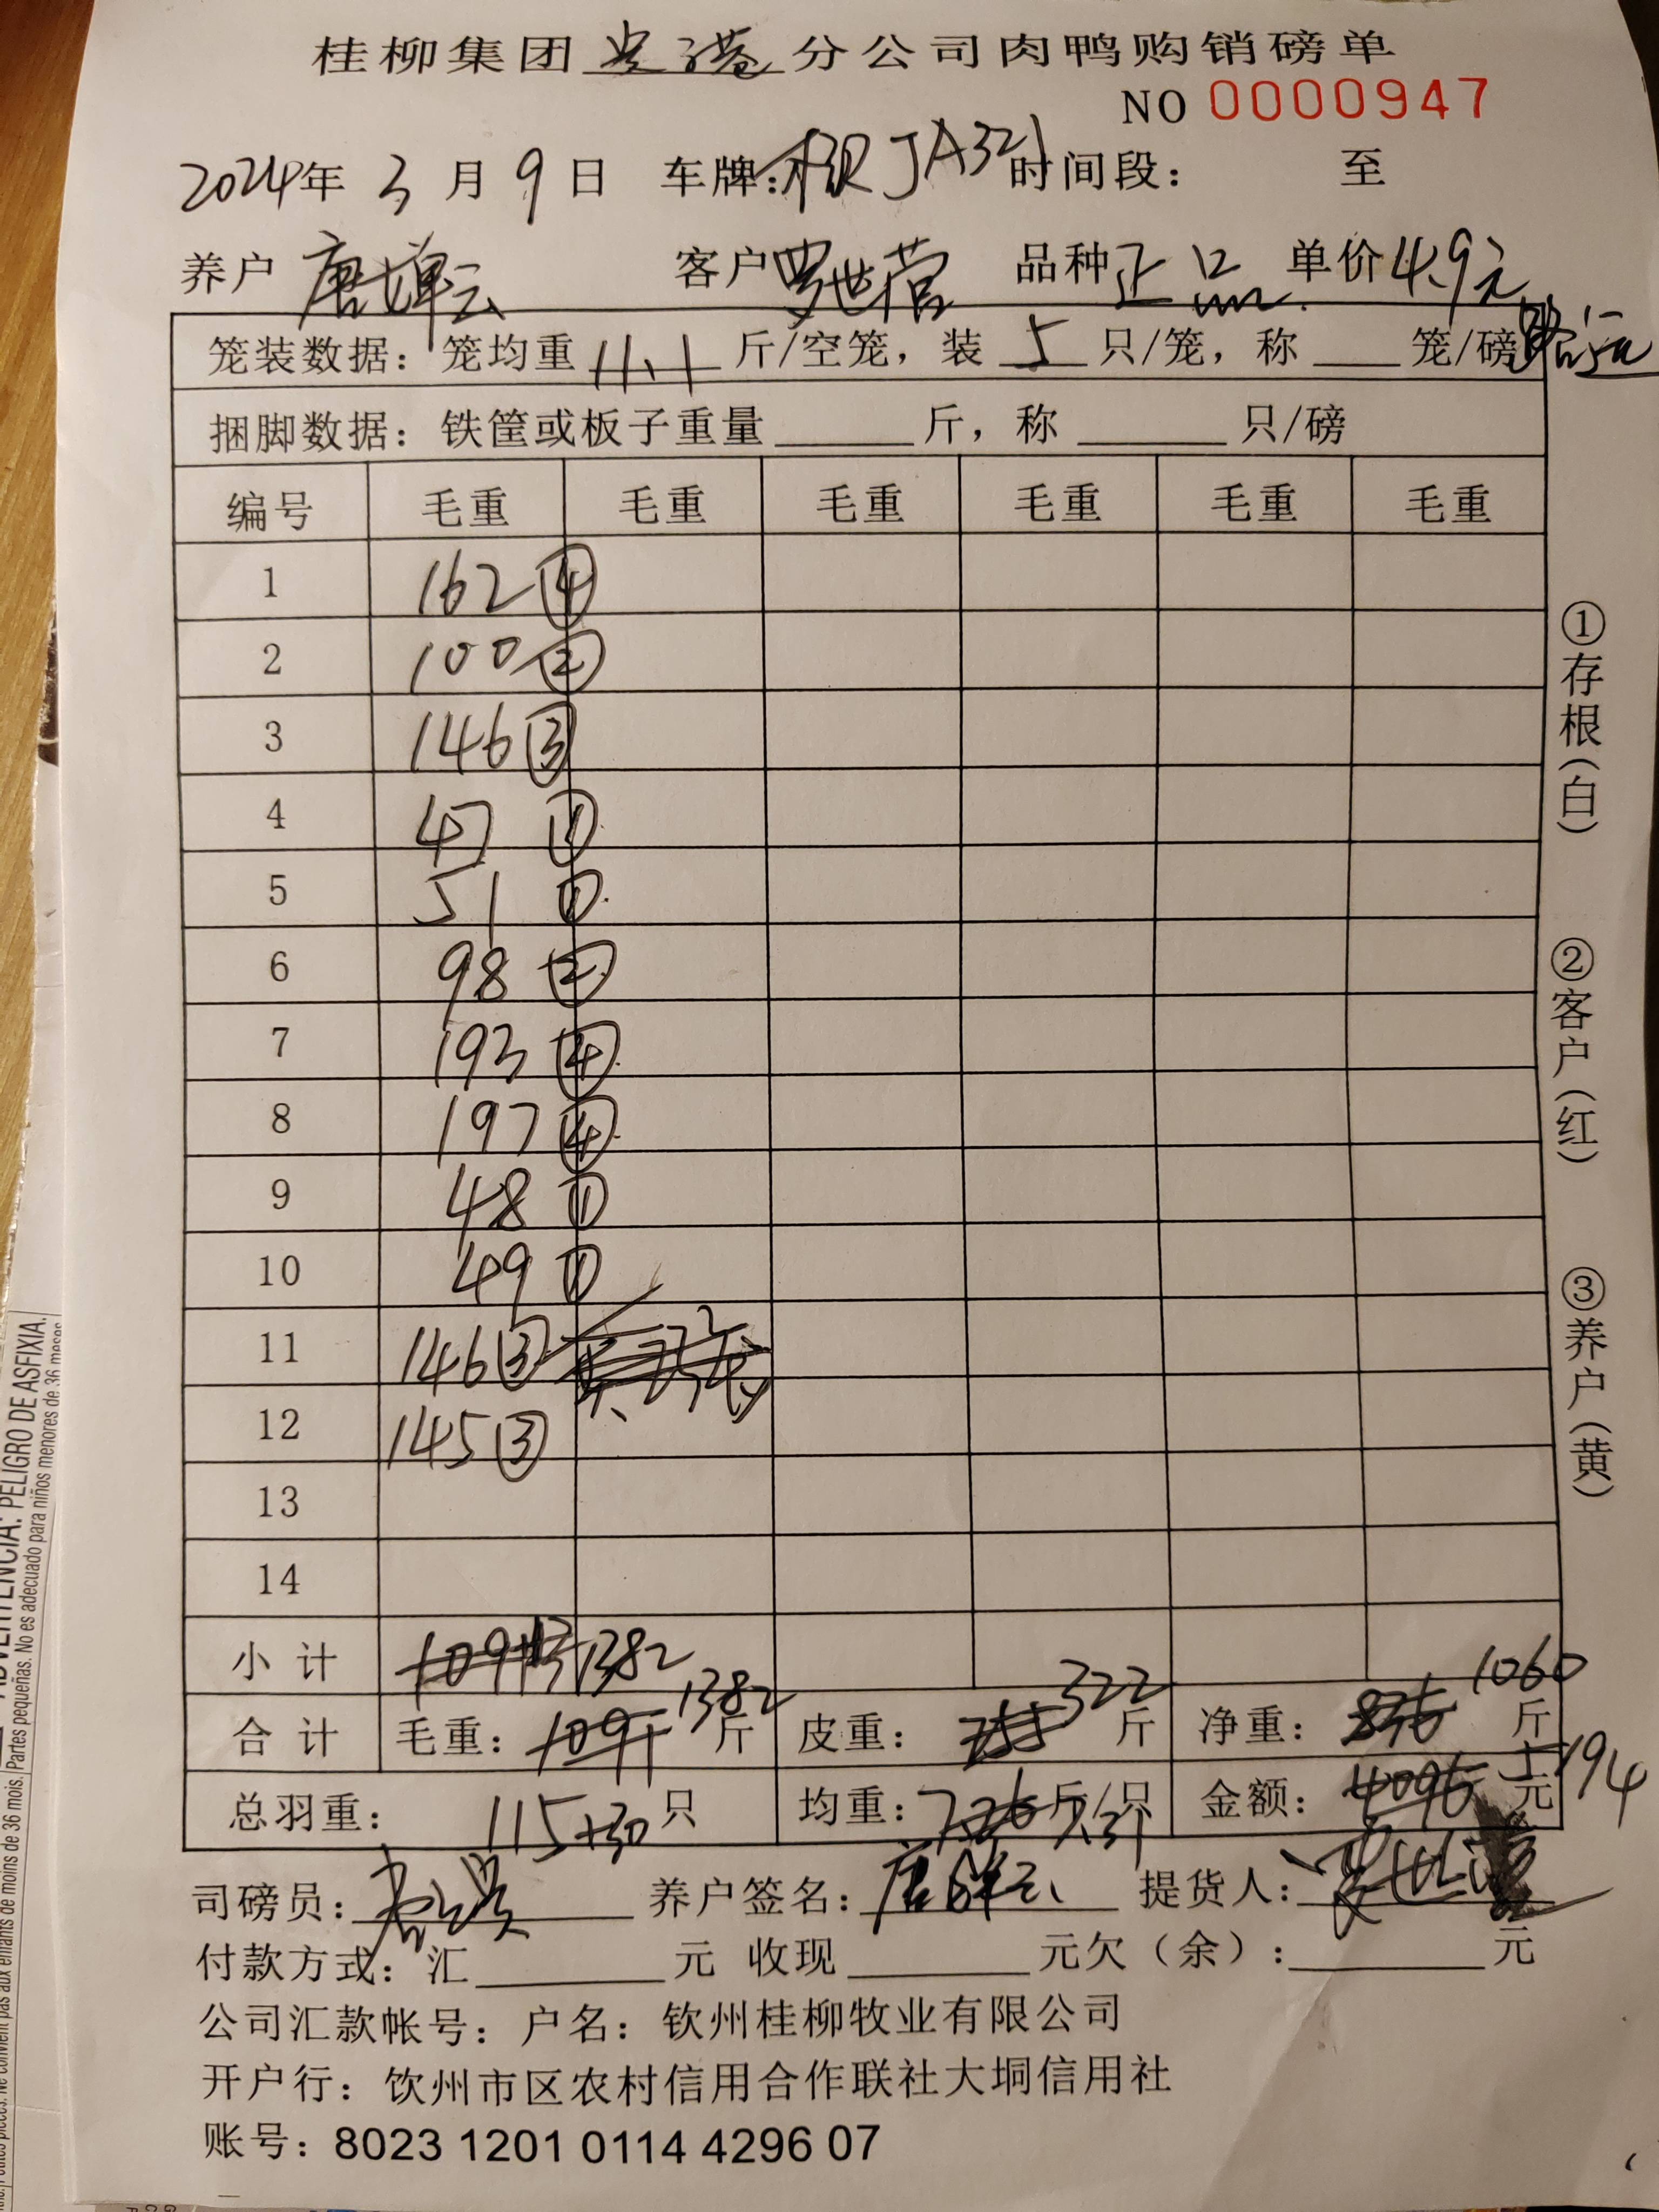 桂柳集团贵港分公司肉鸭购销磅单
NO 0000947
2024年 3 月 9 日 车牌:桂R JA321 时间段: 至
养户 唐 云 客户 罗世营 品种 正品 单价 4.9元
笼装数据: 笼均重 11.1 斤/空笼, 装 5 只/笼, 称 笼/磅
捆脚数据: 铁筐或板子重量 斤, 称 只/磅
编号 毛重 毛重 毛重 毛重 毛重 毛重
1 162 ④
2 100 ②
3 146 ③
4 47 ①
5 51 ①
6 98 ②
7 193 ④
8 197 ④
9 48 ①
10 49 ①
11 146 ③
12 145 ③
13
14
小 计 1382
合 计 毛重: 1091 1382 斤 皮重: 255 322 斤 净重: 836 1060 斤
总羽重: 115+30 只 均重: 7.26 斤/只 7.31 金额: 4096 元 5194
司磅员: 养户签名: 唐 云 提货人:
付款方式: 汇 元 收现 元欠(余): 元
公司汇款帐号: 户名: 钦州桂柳牧业有限公司
开户行: 饮州市区农村信用合作联社大垌信用社
账号: 8023 1201 0114 4296 07
①存根(白)
②客户(红)
③养户(黄)
ADVERTENCIA: PELIGRO DE ASFIXIA.
Partes pequeñas. No es adecuado para niños menores de 36 meses